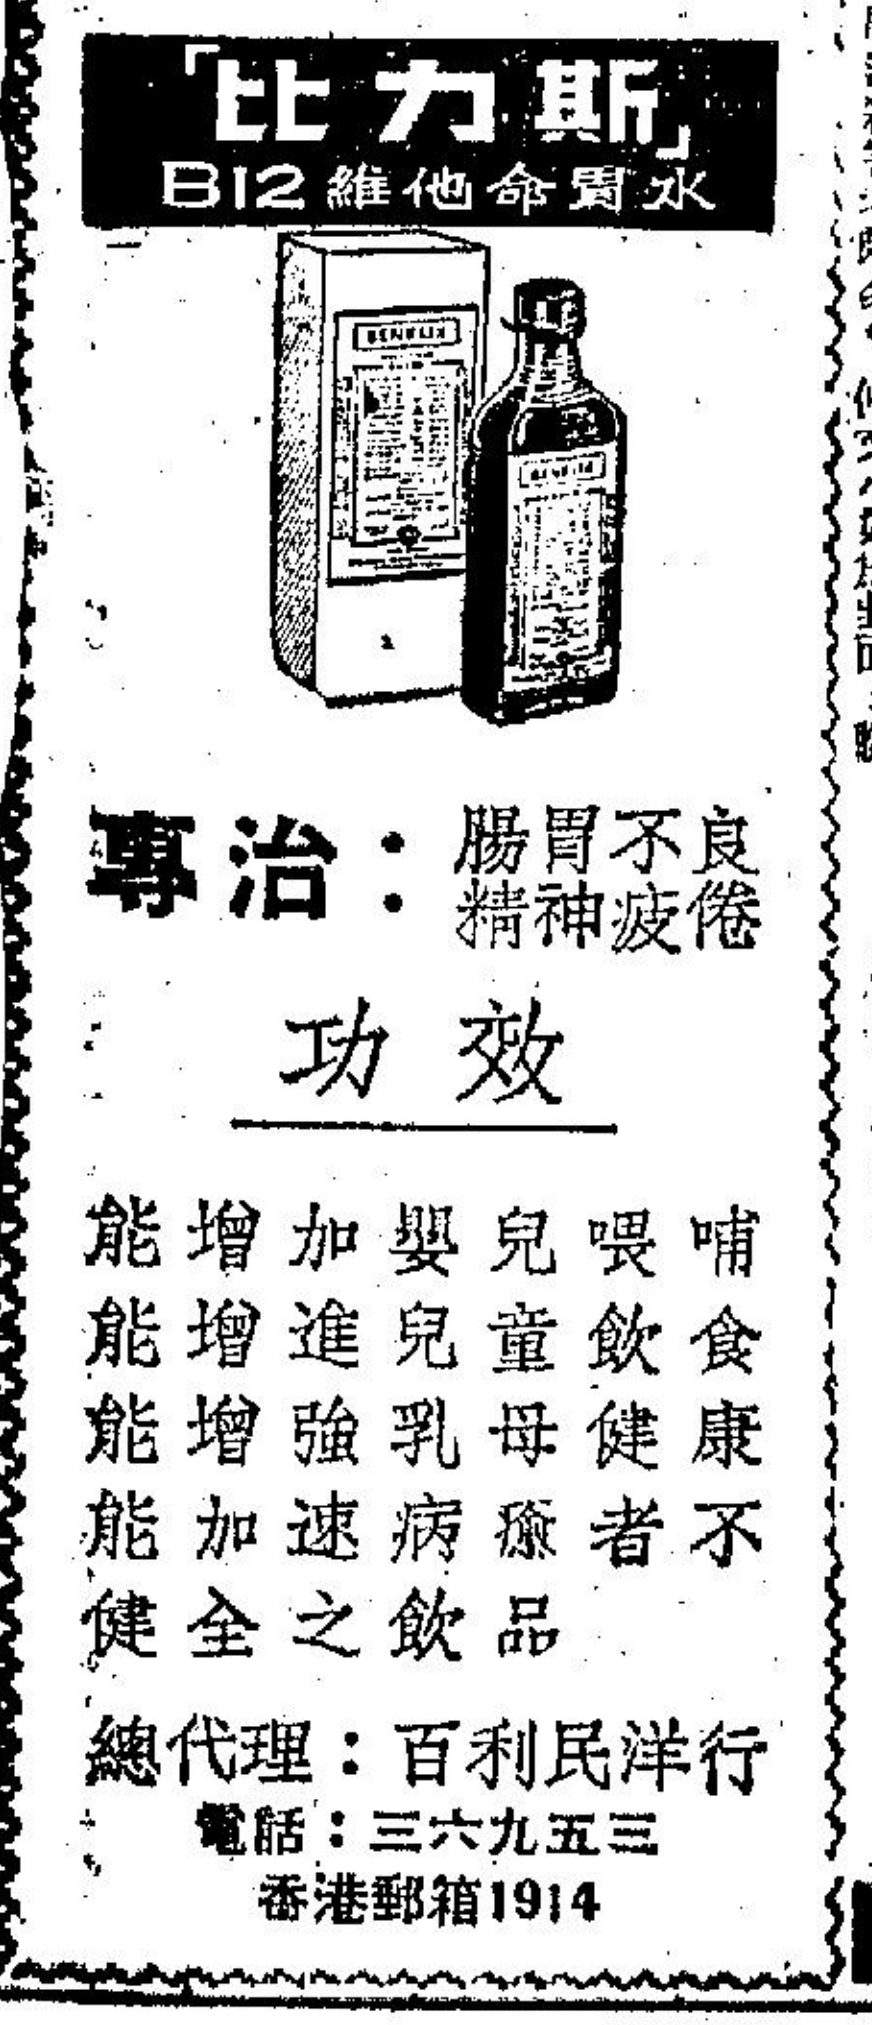 「比力斯」
B12維他命胃水
專治：腸胃不良
精神疲倦
功效
能增加嬰兒喂哺
能增進兒童飲食
能增強乳母健康
能加速病瘉者不
健全之飲品
總代理：百利民洋行
電話：三六九五三
香港郵箱1914